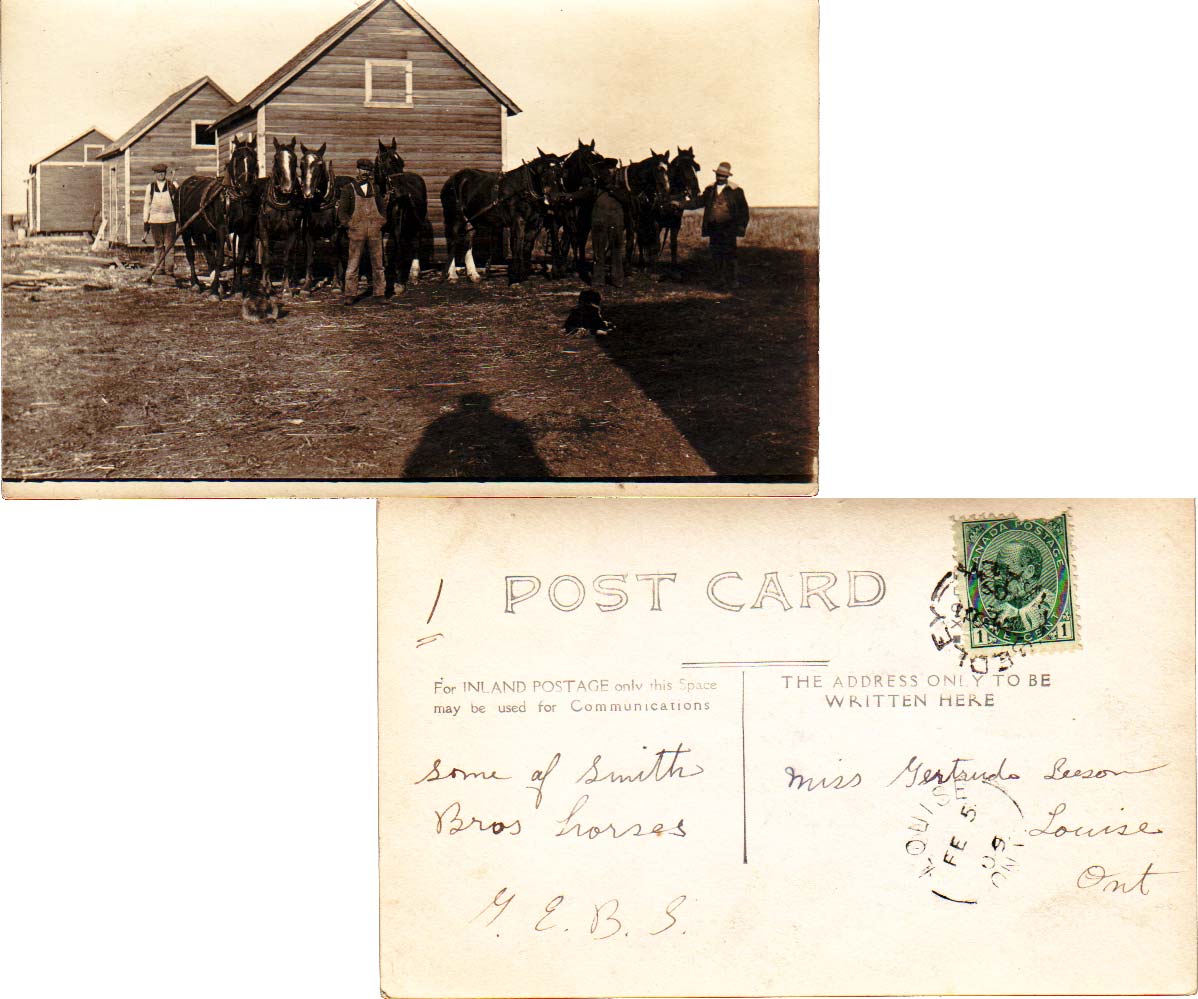 POST CARD
1
CANADA POSTAGE
1 ONE CENT 1
For INLAND POSTAGE only this Space
may be used for Communications
THE ADDRESS ONLY TO BE
WRITTEN HERE
Some of Smith
Bros horses
G. E. B. S.
Miss Gertrude Leeson
Louise
Ont
LOUISE
FE 5
09
ONT